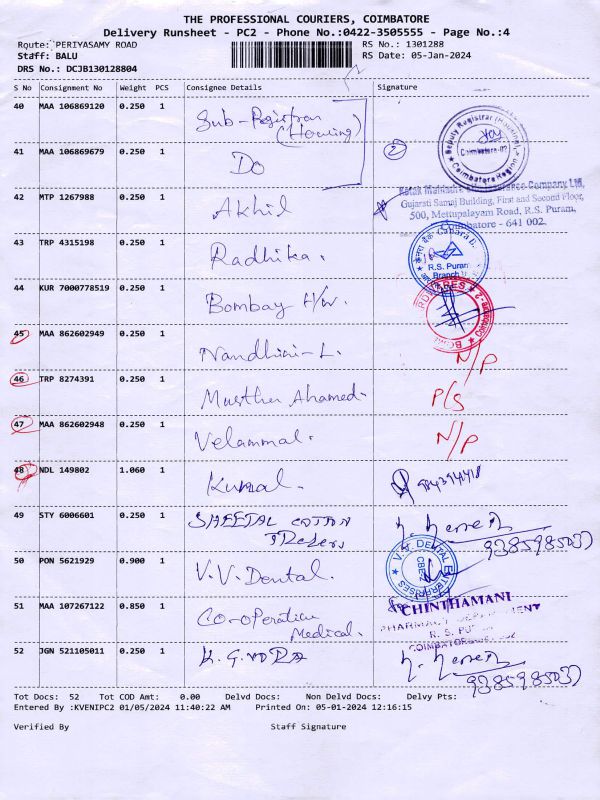 THE PROFESSIONAL COURIERS, COIMBATORE
Delivery Runsheet - PC2 - Phone No.:0422-3505555 - Page No.:4
Route: PERIYASAMY ROAD
RS No.: 1301288
Staff: BALU
RS Date: 05-Jan-2024
DRS No.: DCJB130128804
S No Consignment No Weight PCS Consignee Details Signature
40 MAA 106869120 0.250 1 Sub-Registrar
(Housing)
Deputy Registrar (Housing)
Coimbatore-02
Coimbatore Region
41 MAA 106869679 0.250 1 Do 2
42 MTP 1267988 0.250 1 Akhil
Kotak Mahindra Life Insurance Company Ltd,
Gujarati Samaj Building, First and Second Floor,
500, Mettupalayam Road, R.S. Puram,
Coimbatore - 641 002.
43 TRP 4315198 0.250 1 Radhika.
R.S. Puram
Branch
44 KUR 7000778519 0.250 1 Bombay H/W.
45 MAA 862602949 0.250 1 Nandhini-L. N/P
46 TRP 8274391 0.250 1 Musthu Ahamed. P/S
47 MAA 862602948 0.250 1 Velammal. N/P
48 NDL 149802 1.060 1 Kunal.
49 STY 6006601 0.250 1 SHEETAL COTTON
Traders
9385985037
50 PON 5621929 0.900 1 V.V. Dental.
V.V. DENTAL ENTERPRISES
CBE-2
51 MAA 107267122 0.850 1 Co-operation
Medical.
CHINTHAMANI
PHARMACY DEPARTMENT
R. S. PURAM
52 JGN 521105011 0.250 1 K. G. VORA
9385985037
Tot Docs: 52 Tot COD Amt: 0.00 Delvd Docs: Non Delvd Docs: Delvy Pts:
Entered By :KVENIPC2 01/05/2024 11:40:22 AM Printed On: 05-01-2024 12:16:15
Verified By Staff Signature